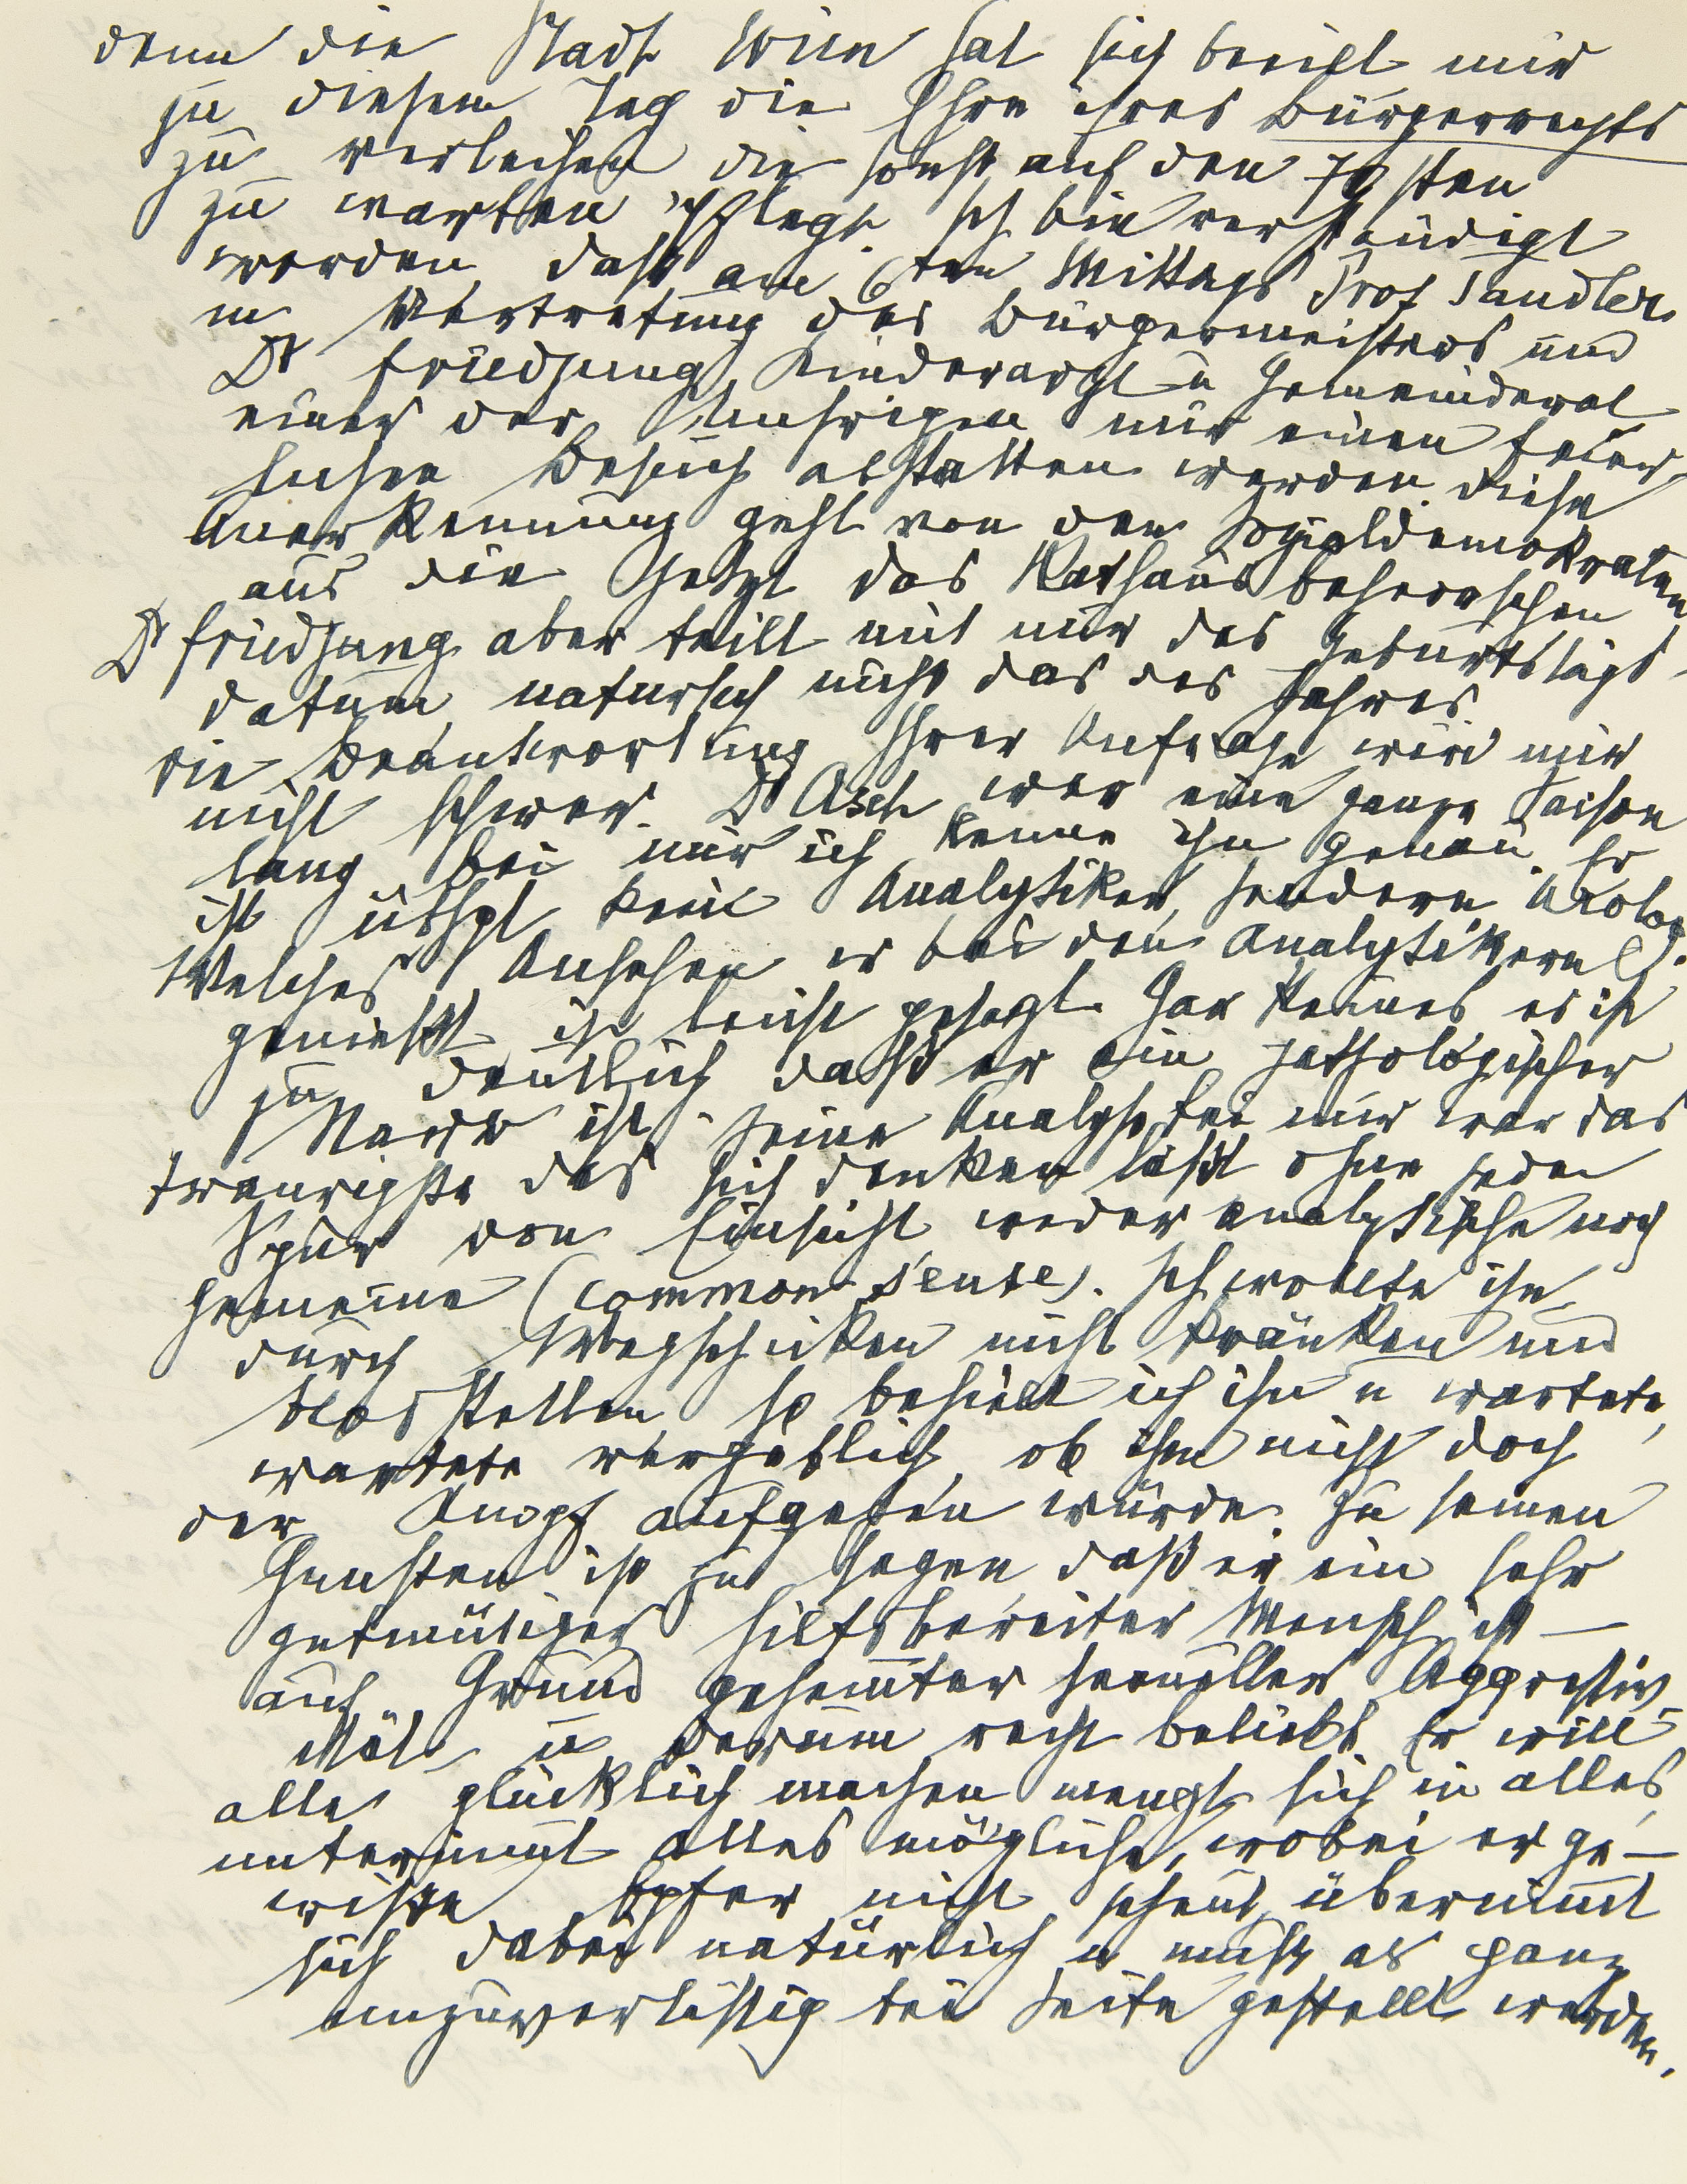 denn die Stadt Wien hat sich beeilt mir
zu diesem Tag die Ehre ihres Bürgerrechts
zu verleihen die sonst auf den 70sten
zu warten pflegt. Ich bin verständigt
worden, daß am 6ten Mittags Prof Tandler
in Vertretung des Bürgermeisters und
Dr Friedjung, Kinderarzt u Gemeinderat
einer der Unsrigen mir einen feier-
lichen Besuch abstatten werden. Diese
Anerkennung geht von den Sozialdemokraten
aus die jetzt das Rathaus beherrschen
Dr Friedjung aber teilt mit mir das Geburtstags-
datum, naturlich nicht das des Jahres.
Die Beantwortung Ihrer Anfrage wird mir
nicht schwer. Dr Asch war eine ganze Saison
lang bei mir ich kenne ihn genau. Er
ist übhpt kein Analytiker, sondern Urolog.
Welches Ansehen er bei den Analytikern
genießt ist leicht gesagt. Gar keines, es ist
zu deutlich daß er ein pathologischer
Narr ist. Seine Analyse bei mir war das
traurigste das sich denken läßt ohne jede
Spur von Einsicht weder analytische noch
gemeine (common sense). Ich wollte ihn
durch Wegschicken nicht kränken und
blos stellen so behielt ich ihn u wartete,
wartete vergeblich, ob ihm nicht doch
der Knopf aufgehen würde. Zu seinen
Gunsten ist zu sagen, daß er ein sehr
gutmütiger hilfsbereiter Mensch ist –
auf Grund gehem̄ter sexueller Aggressiv-
ität, u darum recht beliebt. Er will
alle glücklich machen mengt sich in alles,
unternim̄t alles mögliche, wobei er ge-
wisse Opfer nicht scheut, übernim̄t
sich dabei natürlich u muß als ganz
unzuverlässig bei Seite gestellt werden.